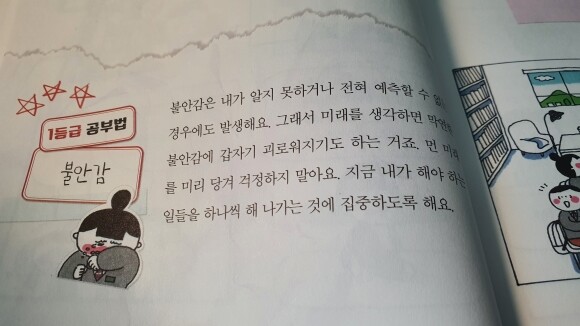 1등급 공부법
불안감
불안감은 내가 알지 못하거나 전혀 예측할 수
경우에도 발생해요. 그래서 미래를 생각하면
불안감에 갑자기 괴로워지기도 하는 거죠. 먼
를 미리 당겨 걱정하지 말아요. 지금 내가 해야
일들을 하나씩 해 나가는 것에 집중하도록 해요.